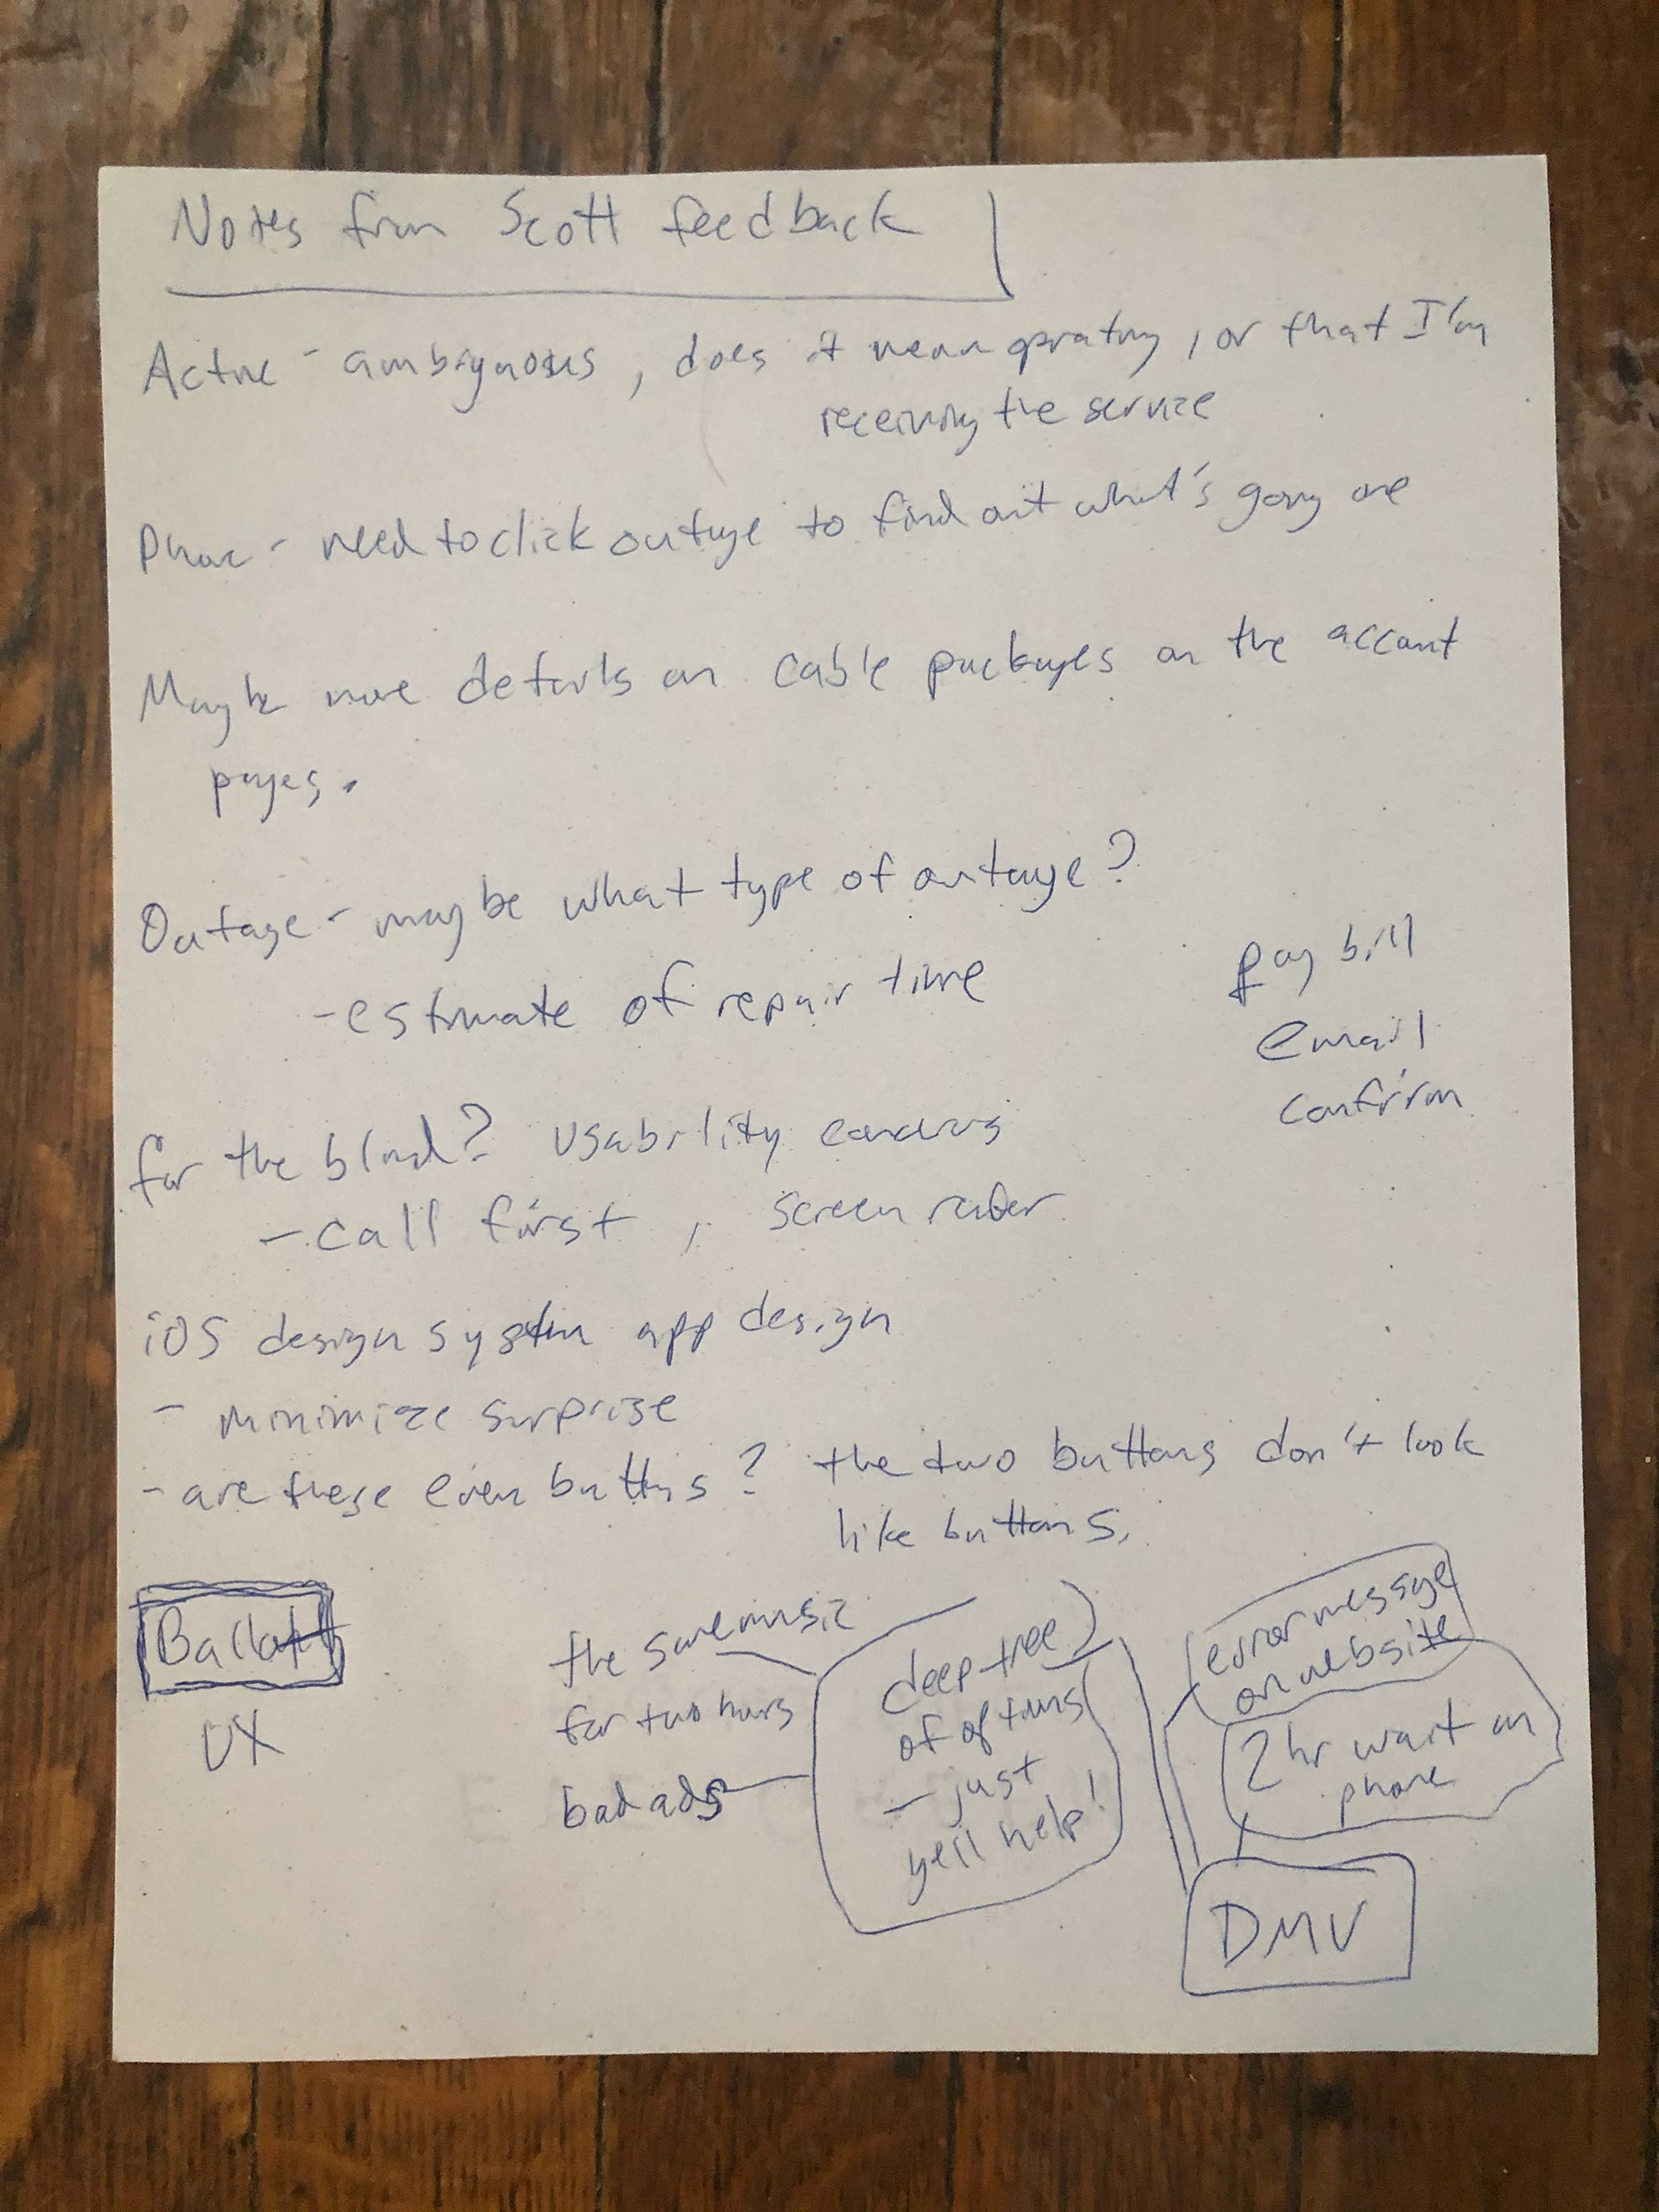 Notes from Scott feedback
Active - ambiguous, does it mean operating, or that I'm
receiving the service
Phone - need to click outage to find out what's going one
Maybe more details on cable packages on the account
pages.
Outage - maybe what type of outage?
- estimate of repair time
pay bill
email
confirm
for the blind? Usability concerns
- call first, screen reader
iOS design system app design
- minimize surprise
- are these even buttons? the two buttons don't look
like buttons.
Ballot
UX
the same music
for two hours
bad ads
deep tree
of options
- just
yell help!
error message
on website
2 hr wait on
phone
DMV